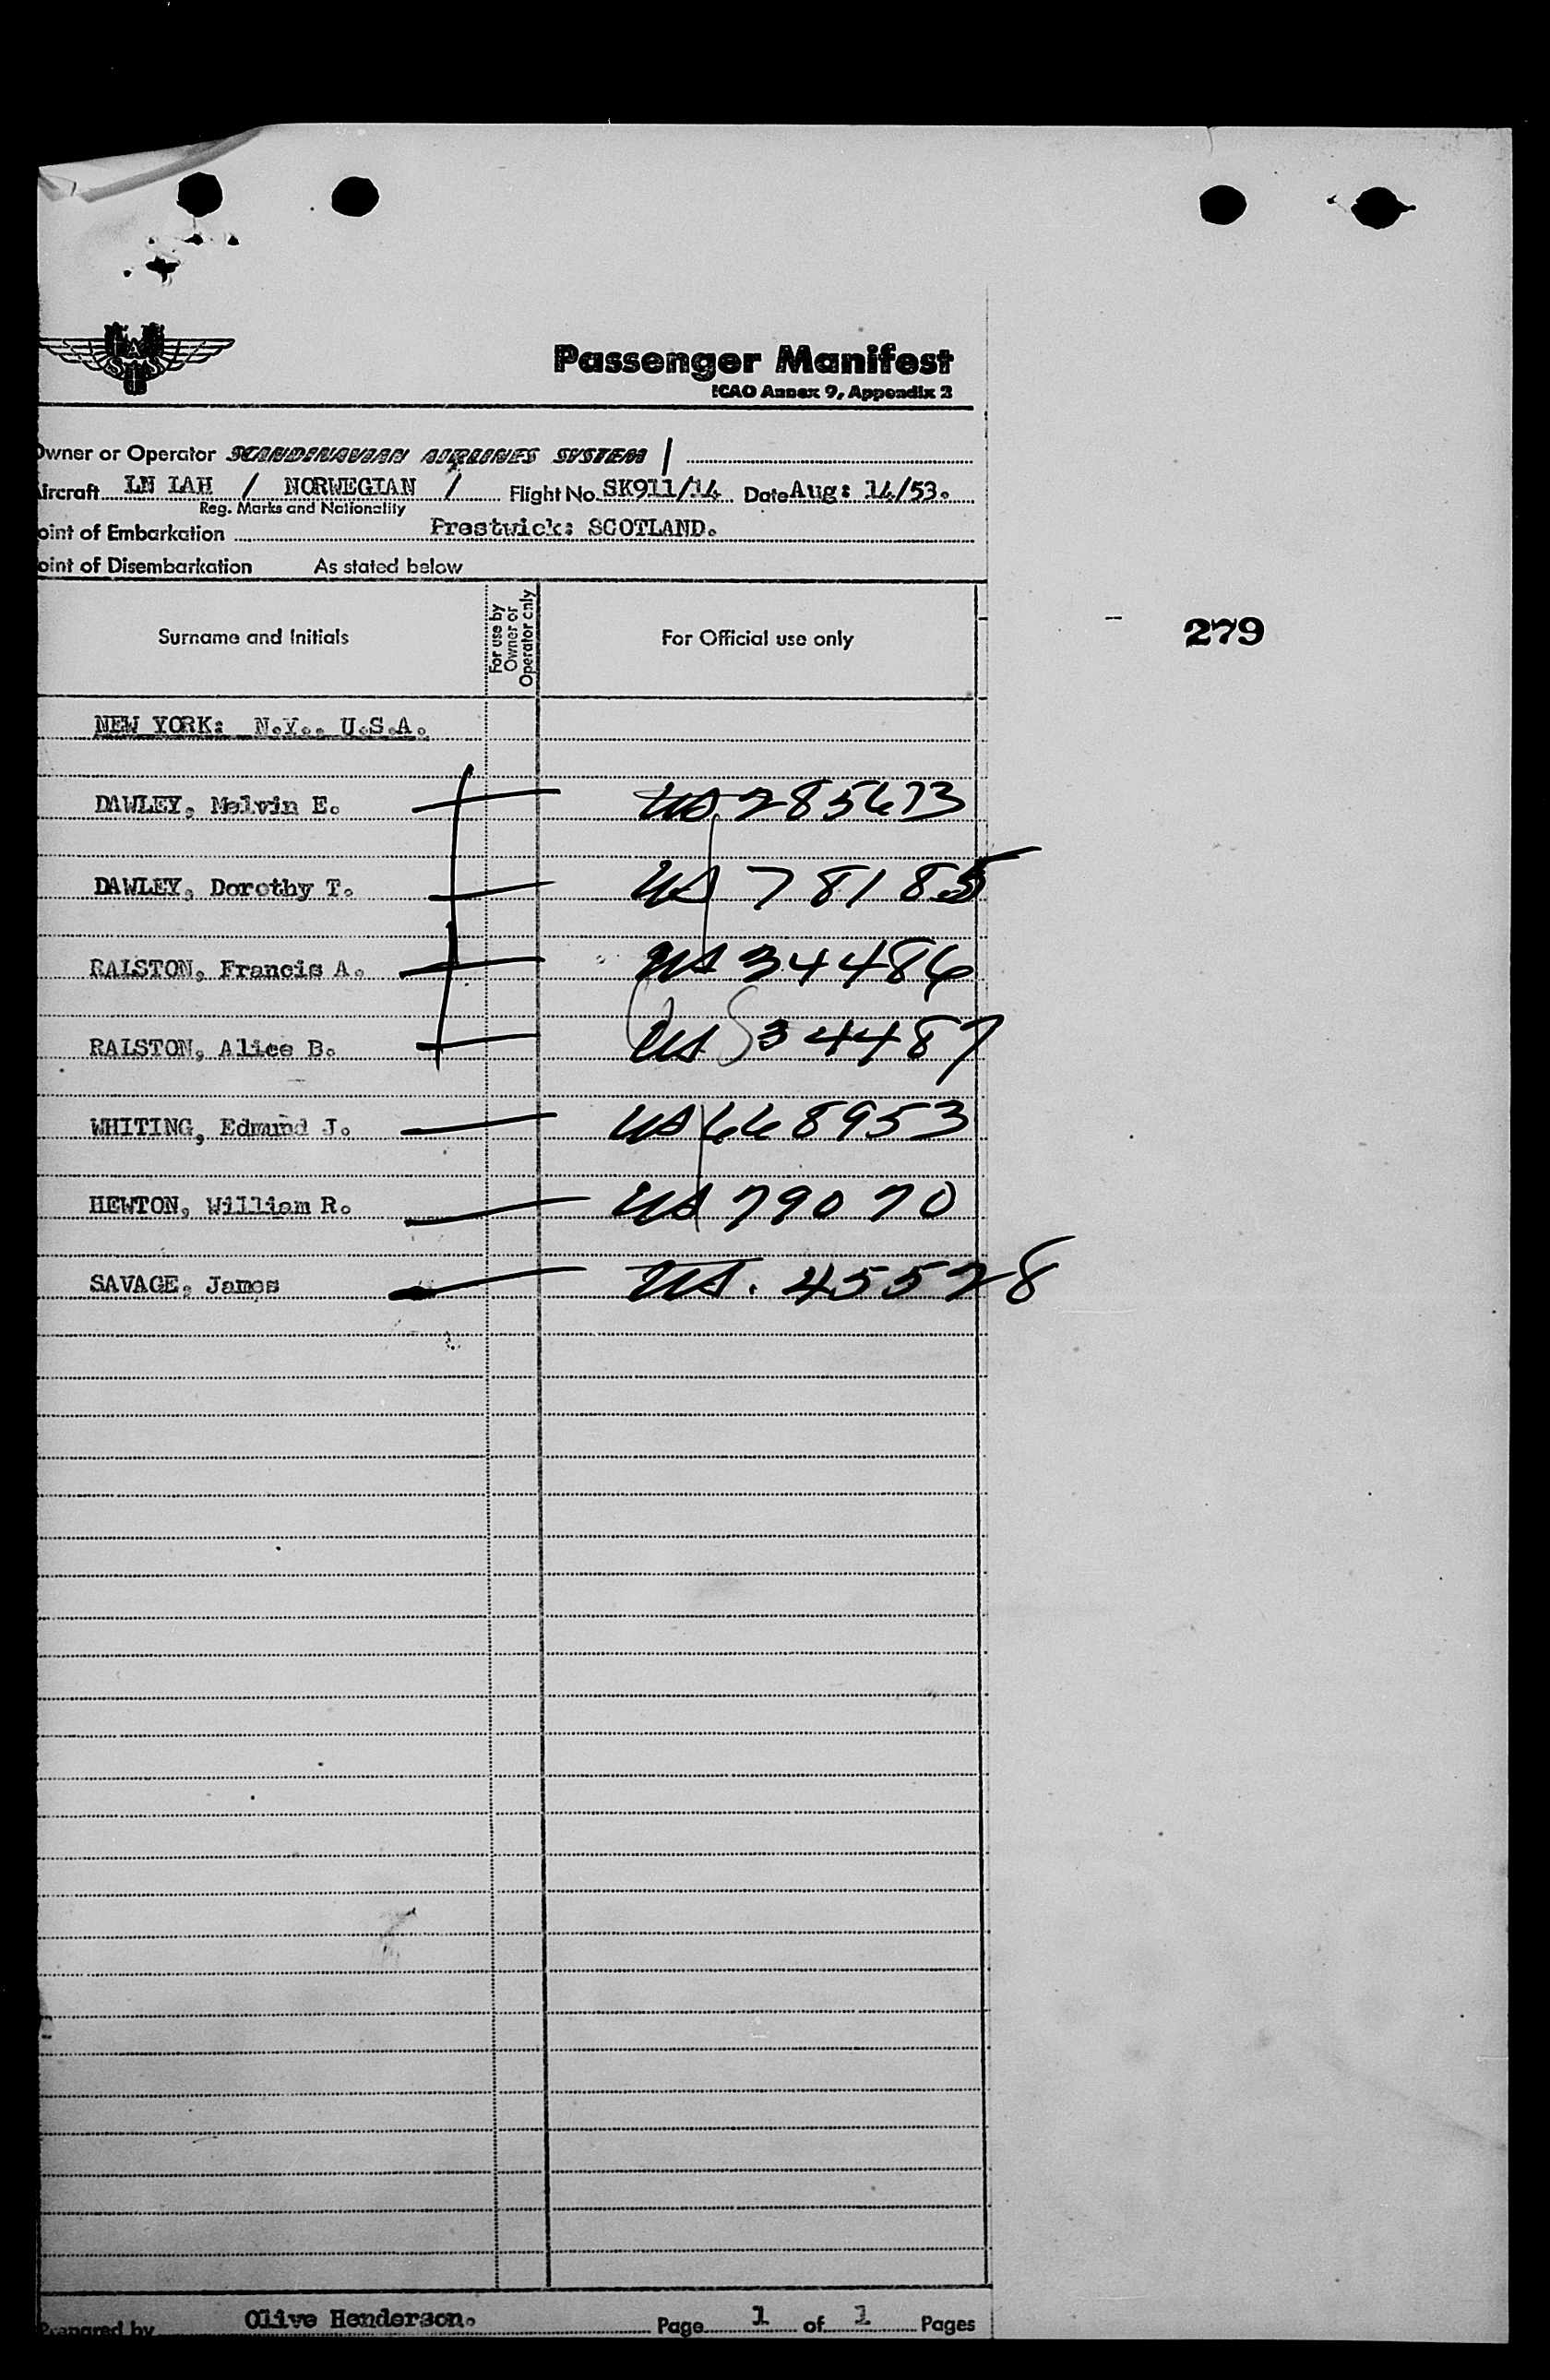 Passenger Manifest
ICAO Annex 9, Appendix 2
Owner or Operator SCANDINAVIAN AIRLINES SYSTEM /
Aircraft LN LAH / NORWEGIAN / Flight No. SK911/14 Date Aug: 14/53.
Reg. Marks and Nationality
Point of Embarkation Prestwick: SCOTLAND.
Point of Disembarkation As stated below
Surname and Initials For use by Owner or Operator only For Official use only
279
NEW YORK: N.Y.. U.S.A.
DAWLEY, Melvin E. US 285673
DAWLEY, Dorothy T. US 78185
RALSTON, Francis A. US 34486
RALSTON, Alice B. US 34487
WHITING, Edmund J. US 668953
HEWTON, William R. US 79070
SAVAGE, James US. 45528
Prepared by Olive Henderson. Page 1 of 1 Pages